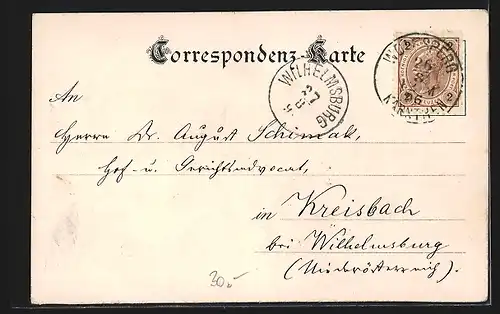 Correspondenz-Karte
WOLFSBERG
KÄRNTEN
WILHELMSBURG
27
8
An
Herrn Dr. August Schimak,
Hof- u. Gerichtsadvocat,
in Kreisbach
bei Wilhelmsburg
(Niederösterreich).
30.-